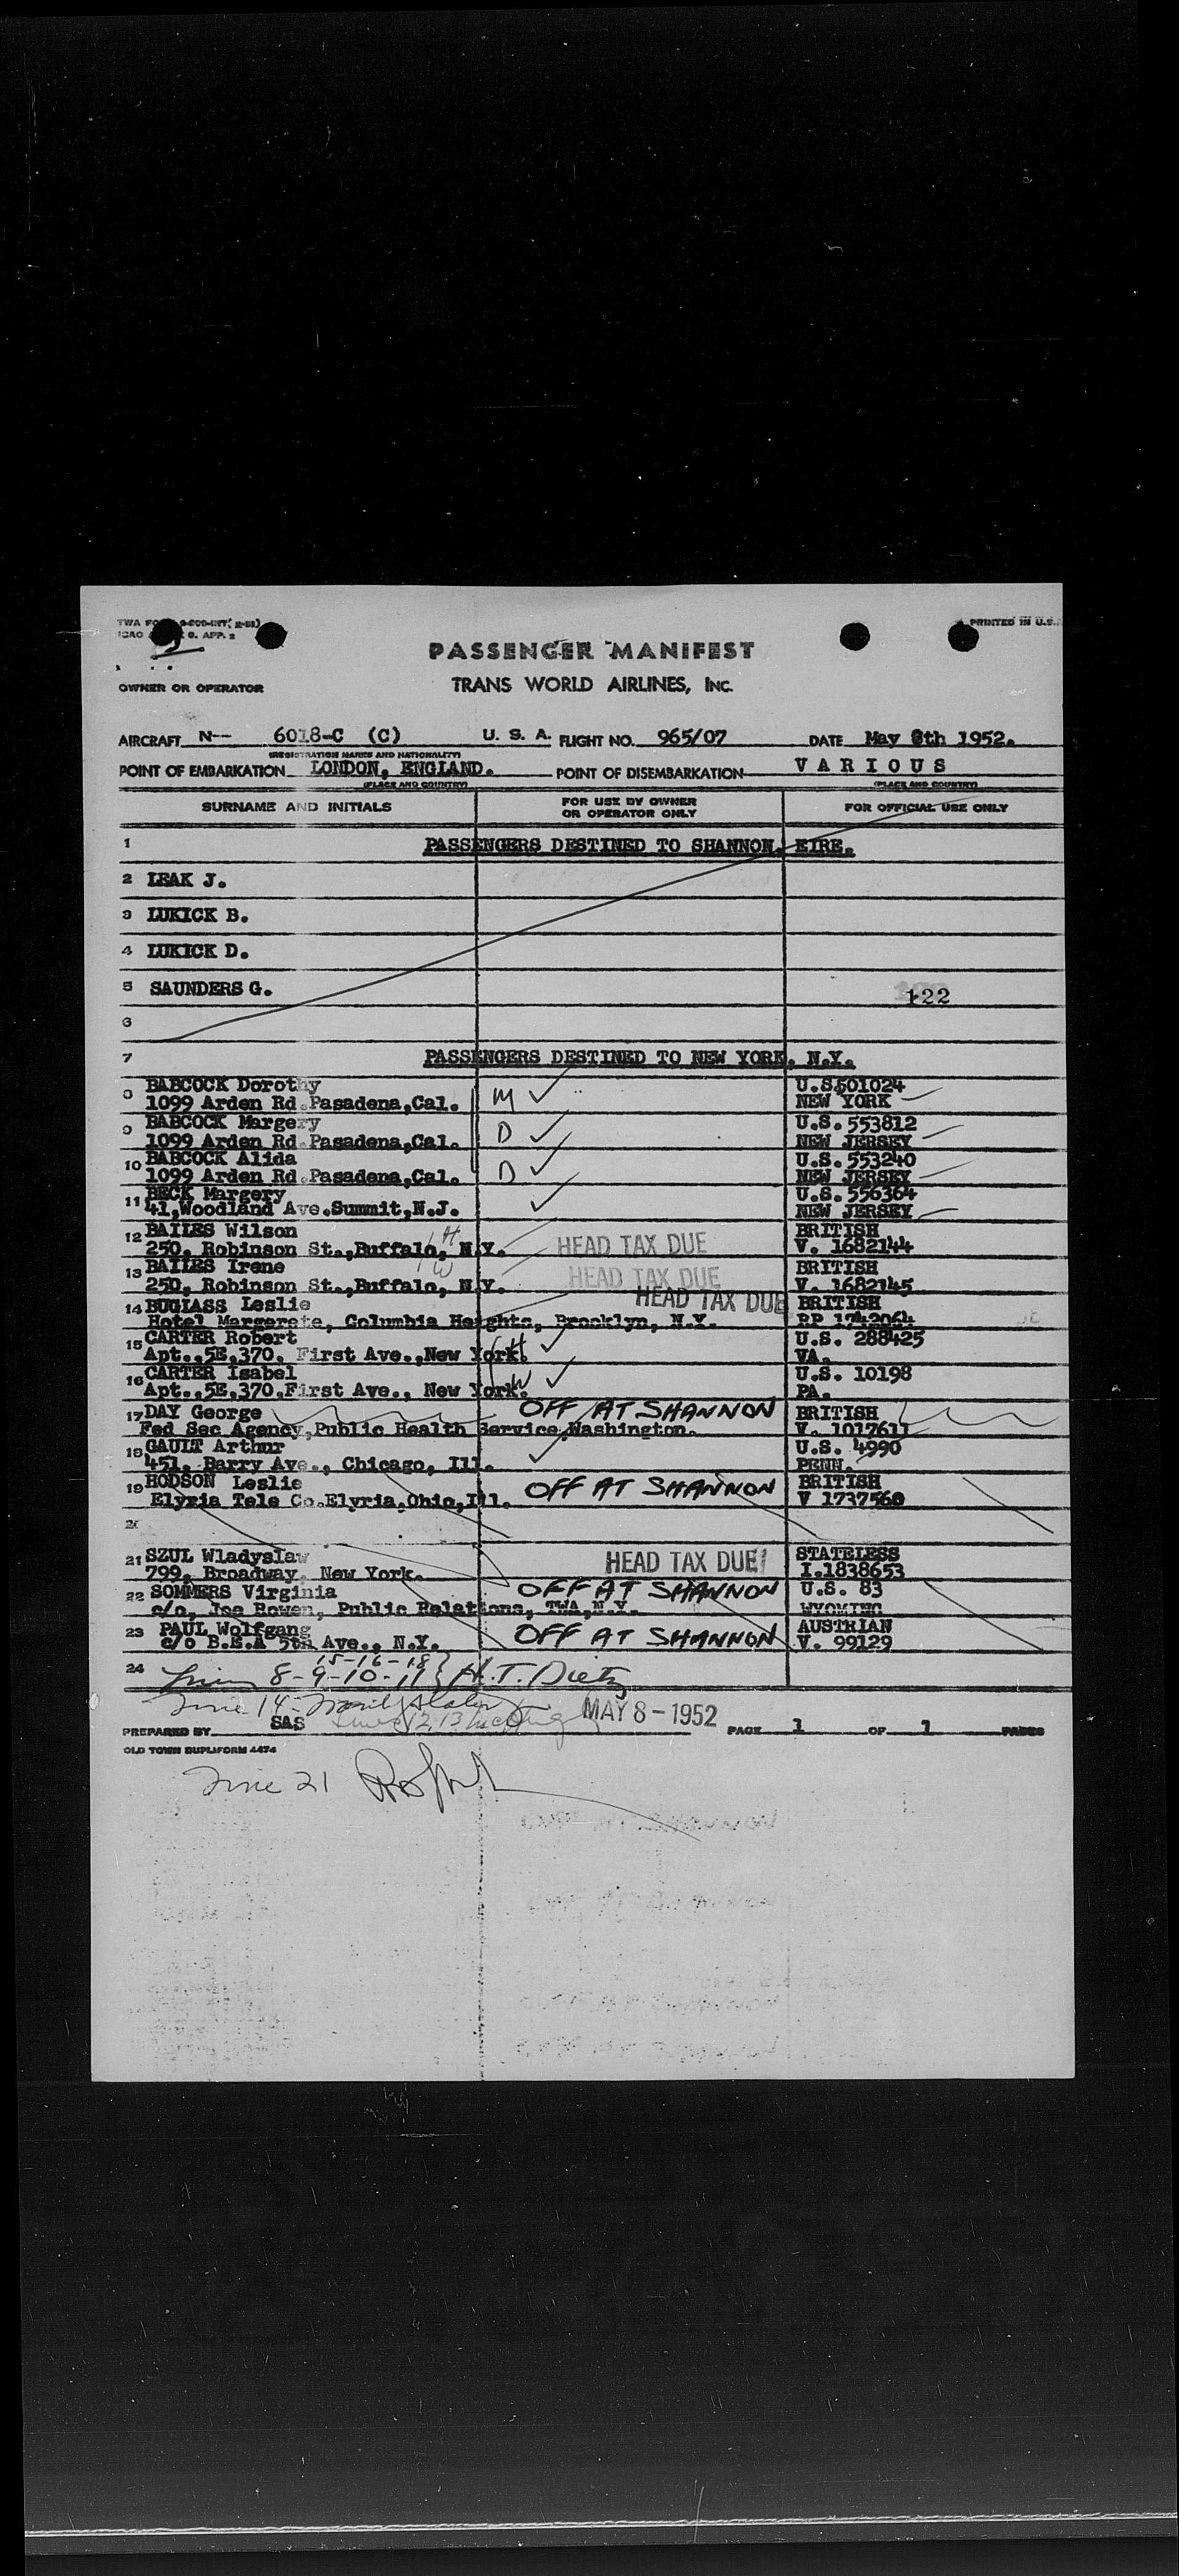 PRINTED IN U.S.
PASSENGER MANIFEST
OWNER OR OPERATOR TRANS WORLD AIRLINES, INC.
AIRCRAFT N-- 6018-C (C) U. S. A. FLIGHT NO. 965/07 DATE May 8th 1952.
(REGISTRATION MARKS AND NATIONALITY)
POINT OF EMBARKATION LONDON, ENGLAND. POINT OF DISEMBARKATION VARIOUS
(PLACE AND COUNTRY) (PLACE AND COUNTRY)
SURNAME AND INITIALS FOR USE BY OWNER OR OPERATOR ONLY FOR OFFICIAL USE ONLY
1 PASSENGERS DESTINED TO SHANNON, EIRE.
2 LEAK J.
3 LUKICK B.
4 LUKICK D.
5 SAUNDERS G. 122
6
7 PASSENGERS DESTINED TO NEW YORK, N.Y.
8 BABCOCK Dorothy M U.S.501024
1099 Arden Rd.Pasadena,Cal. NEW YORK
9 BABCOCK Margery D U.S.553812
1099 Arden Rd.Pasadena,Cal. NEW JERSEY
10 BABCOCK Alida D U.S.553240
1099 Arden Rd.Pasadena,Cal. NEW JERSEY
11 BECK Margery U.S.556364
41,Woodland Ave.Summit,N.J. NEW JERSEY
12 BAILES Wilson H BRITISH
250, Robinson St.,Buffalo, N.Y. HEAD TAX DUE V. 1682144
13 BAILES Irene W HEAD TAX DUE BRITISH
250, Robinson St.,Buffalo, N.Y. V. 1682145
14 BUGLASS Leslie HEAD TAX DUE BRITISH
Hotel Margerete, Columbia Heights, Brooklyn, N.Y. RP 1742064
15 CARTER Robert H U.S. 288425
Apt.,5E,370, First Ave.,New York. VA.
16 CARTER Isabel W U.S. 10198
Apt.,5E,370,First Ave., New York. PA.
17 DAY George OFF AT SHANNON BRITISH
Fed Sec Agency,Public Health Service,Washington. V. 1017611
18 GAULT Arthur U.S. 4990
451, Barry Ave., Chicago, Ill. PENN.
19 HODSON Leslie OFF AT SHANNON BRITISH
Elyria Tele Co.Elyria,Ohio,Ill. V 1737560
21 SZUL Wladyslaw HEAD TAX DUE STATELESS
799, Broadway, New York. I.1838653
22 SOMMERS Virginia OFF AT SHANNON U.S. 83
c/o, Joe Bowen, Public Relations, TWA,N.Y. WYOMING
23 PAUL Wolfgang OFF AT SHANNON AUSTRIAN
c/o B.E.A 5th Ave., N.Y. V. 99129
15-16-18
24 Lines 8-9-10-11 H.T. Dietz
Line 14-
PREPARED BY SAS MAY 8-1952 PAGE 1 OF 1 PAGES
OLD TOWN DUPLIFORM 4474
Line 21